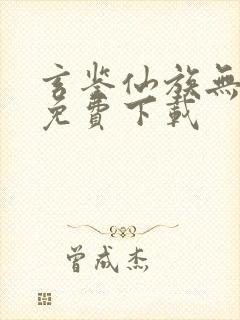 玄鉴仙族無
免費下載
曾成杰